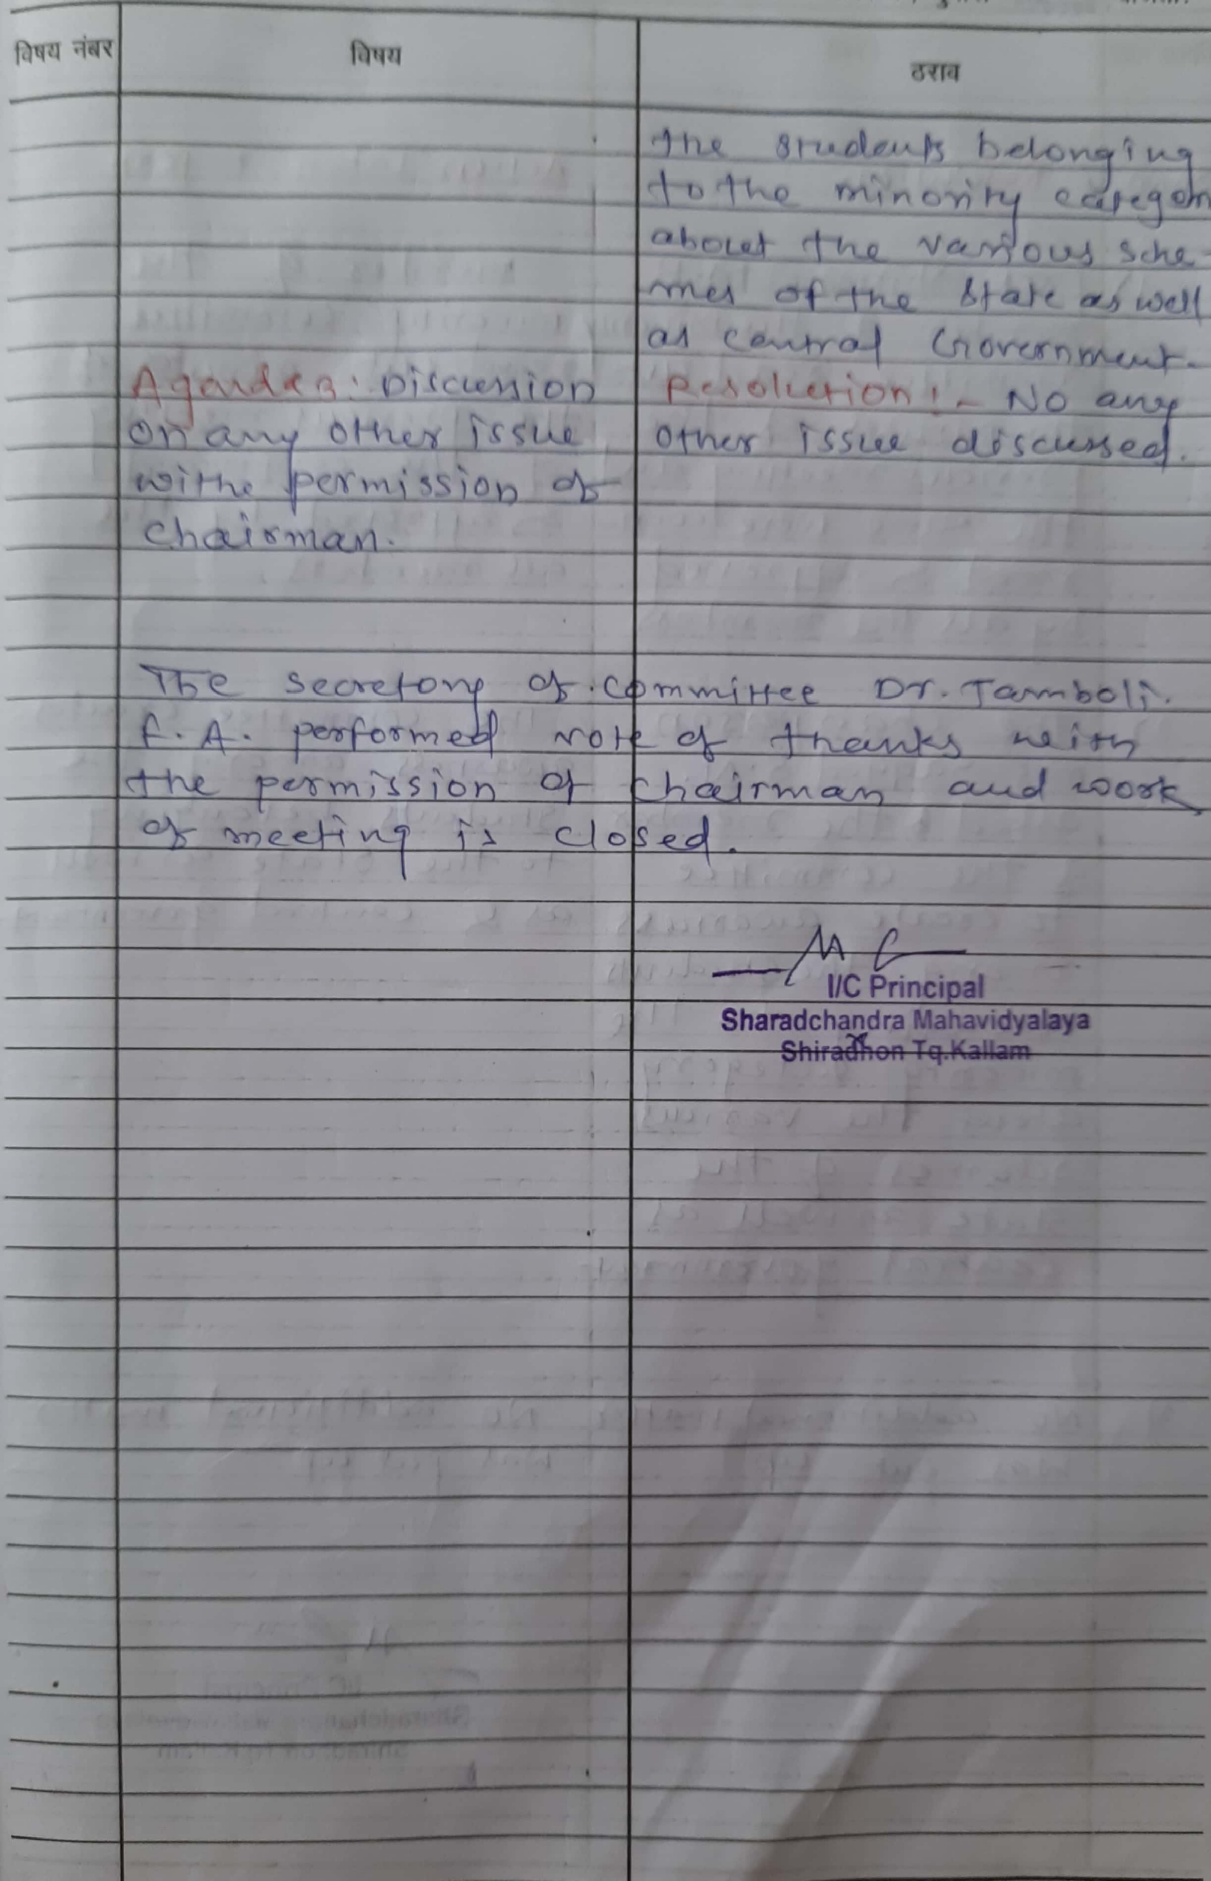 विषय नंबर
विषय
ठराव
the students belonging
to the minority categor
about the various sche-
mes of the State as well
as central Government.
Agenda 3: Discussion
on any other issue
withe permission of
chairman.
Resolution :- No any
other issue discussed.
The secretory of committee Dr. Tamboli.
F. A. performed vote of thanks with
the permission of chairman and work
of meeting is closed.
I/C Principal
Sharadchandra Mahavidyalaya
Shiradhon Tq.Kallam